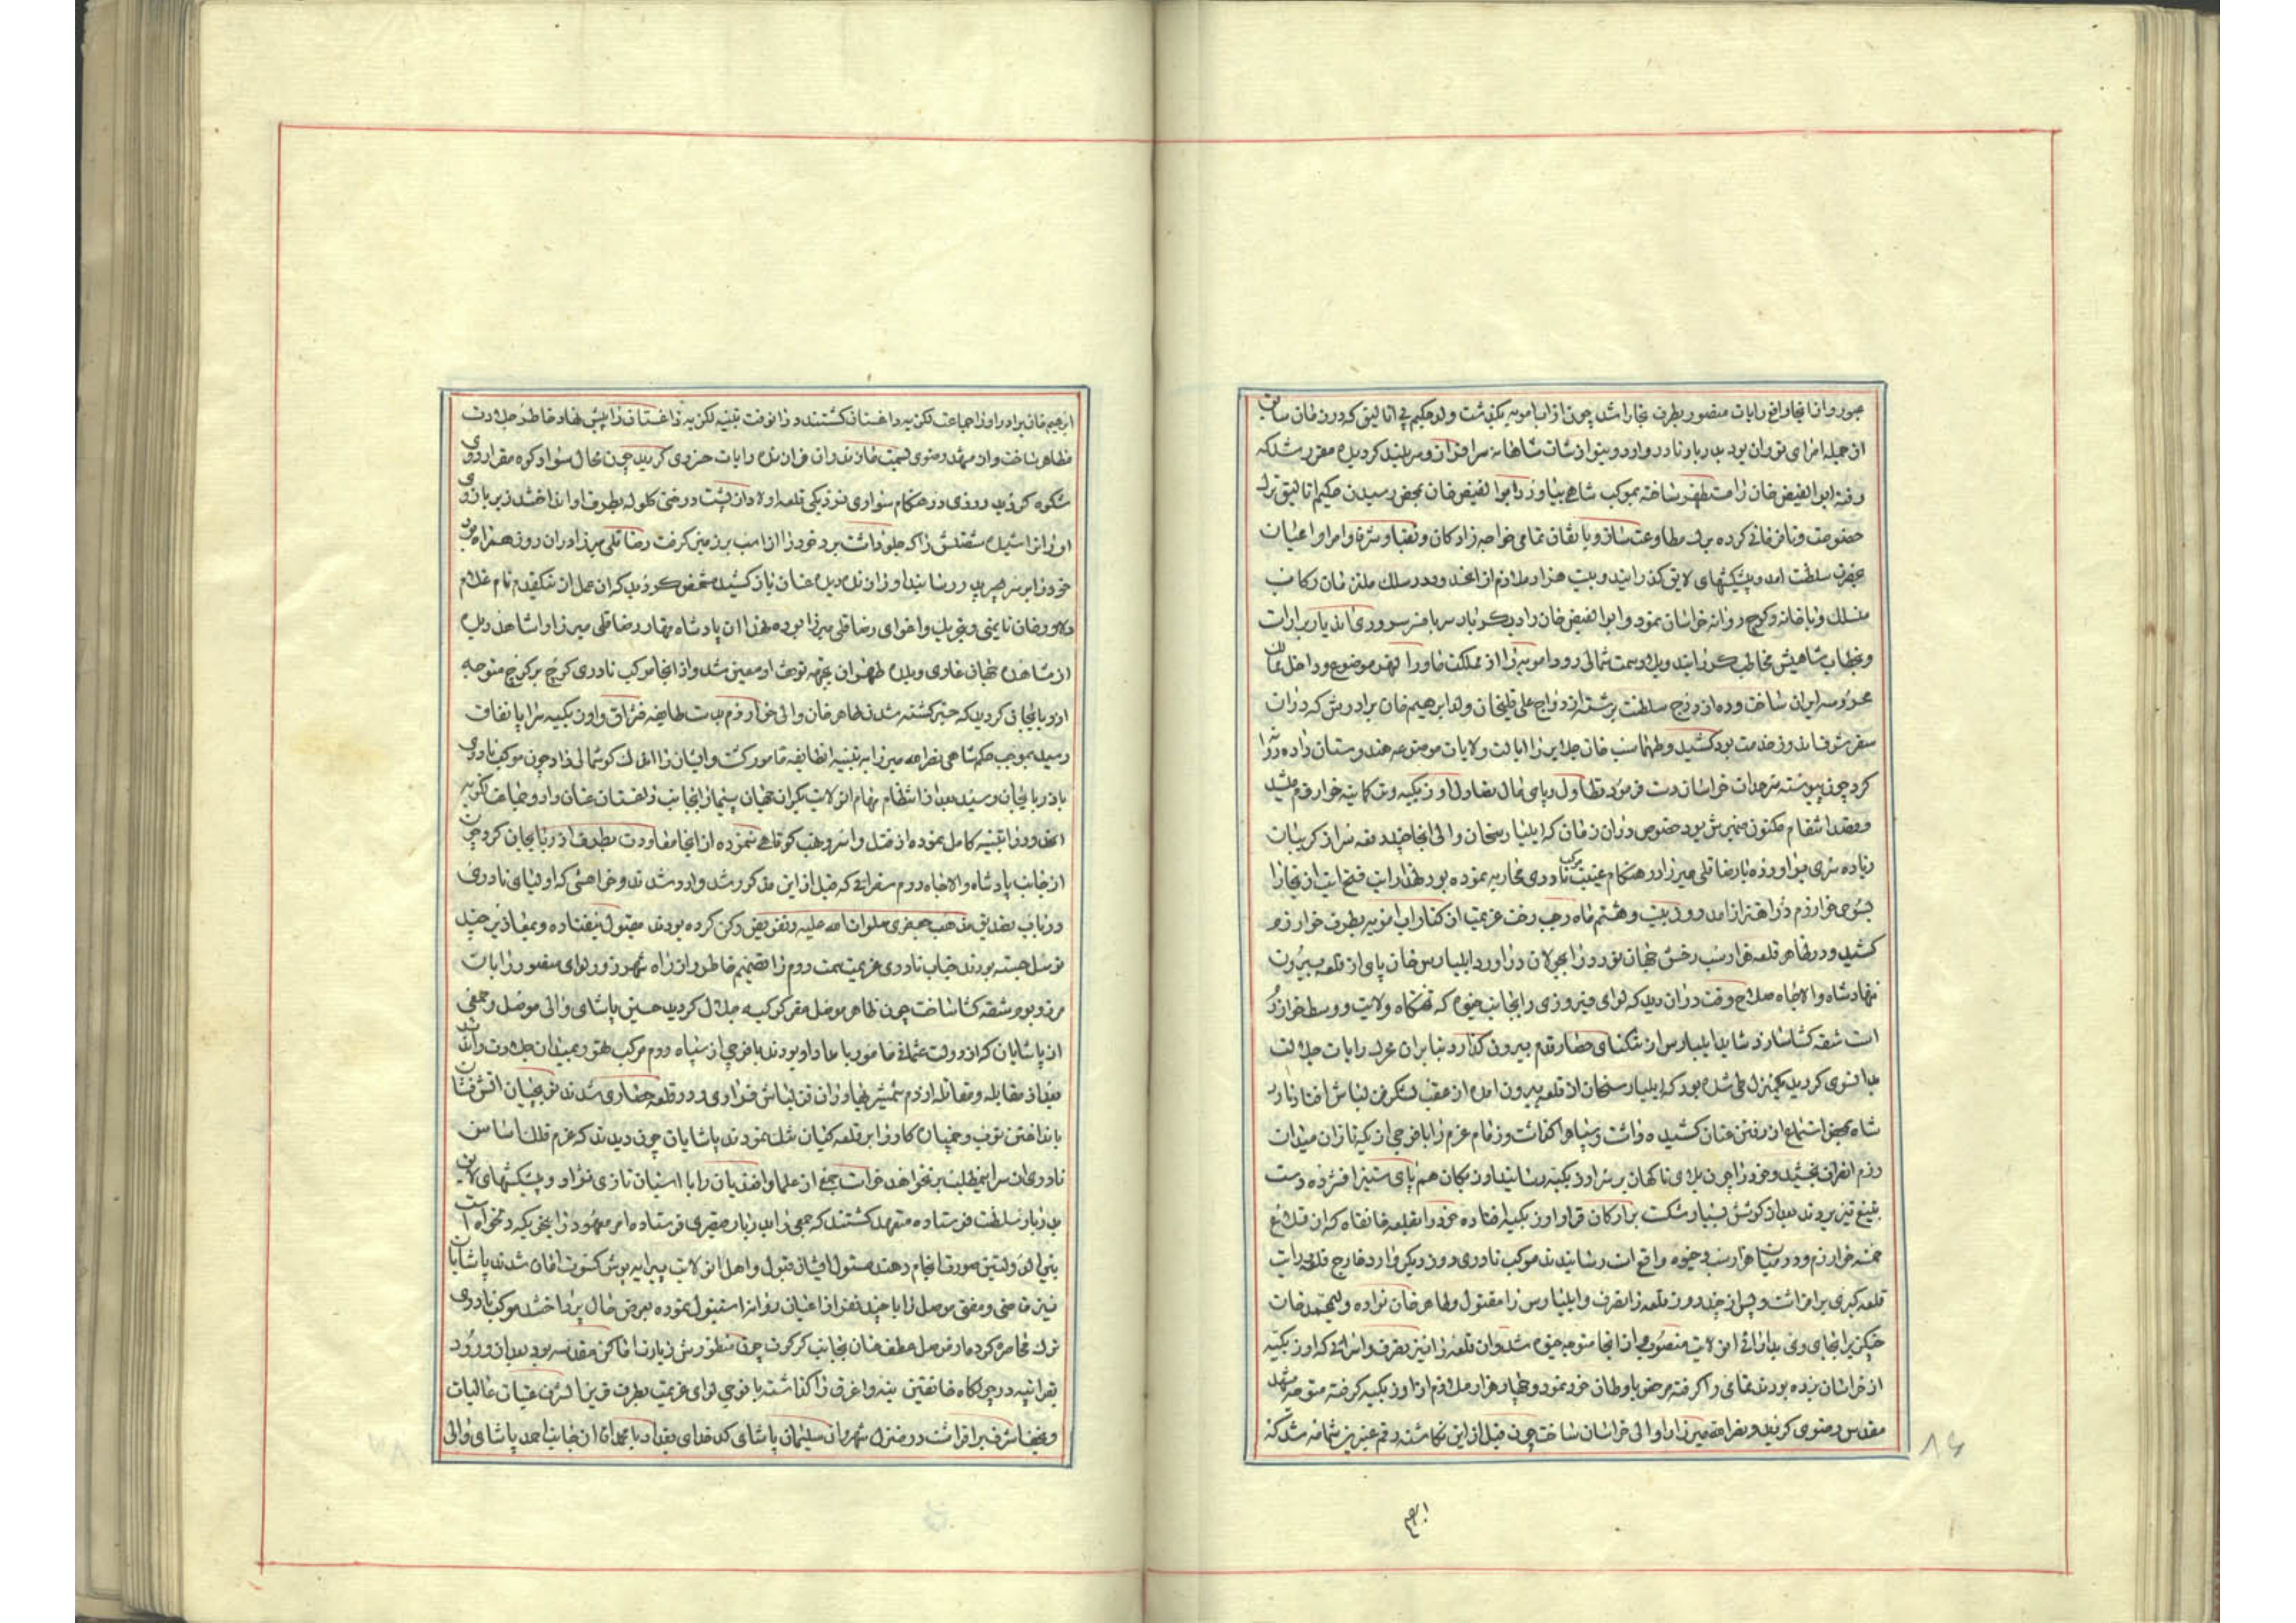 عبور و از انجا وافع رایات منصور بطرف بخارا شد چون از اب امویه بگذشت ولد حکیم بی اتالیق که در زمان سابق
از جمله امرای توران بود بدربار نادر وارد و بنوازشات شاهانه سرافراز و سربلند گردیده مقرر شد که
رفته ابوالفیض خان را مستظهر ساخته بموکب شاهی بیاورد ابوالفیض خان بمحض رسیدن حکیم اتالیق ترک
خصومت و نافرمانی کرده براه مطاوعت شتافت و باتفاق تمامی خواجه زادکان و نقبا و شرفا و امرا و اعیان
بحضرت سلطنت امد و پیشکشهای لایق گذرانید و بیست هزار ملازم از انحدود در سلک ملتزمان رکاب
منسلک و با خانه و کوچ روانه خراسان نمود و ابوالفیض خان را دیگر باره سر بافسر سروری ان دیار برآراست
و بخطاب شاهیش مخاطب گردانید و بلاد سمت شمالی رود امویه را از مملکت ماوراء النهر موضوع و داخل ممالک
محروسه ایران ساخت و ده از دوج سلطنت برشته ازدواج علی قلیخان ولد ابراهیم خان برادرش که در ان
سفر شرف اندوز خدمت بود کشید و طهماسب خان جلایر را ایالت ولایات موضوعه هندوستان داده روانه
کرد چون پیوسته سرحدات خراسان دست فرسود تطاول و پای مال تعادل اوزبکیه و تراکمه خوارزم میشد
و قصد انتقام مکنون ضمیرش بود خصوص در ان زمان که ایلبارسخان والی انجا چند دفعه سر از گریبان
زیاده سری براورده با رضا قلی میرزا در هنگام غیبت موکب نادری محاربه نموده بود لهذا رایت فتح ایت از بخارا
بسوی خوارزم در اهتزاز امد و روز بیست و هشتم ماه رجب رخت عزیمت از کنار اب امویه بطرف خوارزم
کشید و در ظاهر قلعه هزارسب رخش جهان نورد را بجولان دراورد ایلبارس خان پای از قلعه بیرون
ننهاد شاه والاجاه صلاح وقت در ان دید که لوای فیروزی را بجانب خیوه که تختگاه ولایت و وسط خوارزم
است شقه کشا سازد شاید ایلبارس از تنگنای حصار قدم بیرون گذارد بنابران محرک رایات جلالت
بدانسوی گردید یکمنزل طی شده بود که ایلبارسخان از قلعه بیرون امده از عقب لشکر قزلباش افتاد نادر
شاه بمحض استماع از رفتن عنان کشیده داشت و سپاه را گذاشت و زمام عزم را با فوجی از یکه تازان میدان
رزم انصراف بخشید و خود را چون بلای ناگهان بر سر اوزبکیه رسانید اوزبکان هم پای ستیز افشرده دست
بتیغ تیز بردند بعد از کوشش بسیار شکست بر ارکان قرار اوزبکیه افتاده خود را بقلعه خانقاه که از قلاع
خمسه خوارزم و در میان هزارسب و خیوه واقع است رسانیدند موکب نادری روز دیگر وارد خارج قلعه رایت
قلعه گیری برافراشت و پس از چند روز قلعه را تصرف و ایلبارس را مقتول و طاهر خان نواده ولیمحمد خان
چنگیزی را بجای وی بدارائی ان ولایت منصوب و از انجا متوجه خیوه شد و ان قلعه را نیز تصرف و اسرائی که اوزبکیه
از خراسان برده بودند تمامی را گرفته مرخص باوطان خود نمود و چهار هزار ملازم از اوزبکیه گرفته متوجه مشهد
مقدس رضوی گردید و نصراله میرزا را والی خراسان ساخت چون قبل از این نگاشته رقم عنبرین شمامه شد که
ابرهیم
ابرهیم خان برادر او را جماعت لکزیه داغستان کشتند در انوقت تنبیه لکزیه داغستان را پیش نهاد خاطر جلادت
مظاهر ساخت و از مشهد رضوی بسمت مازندران فرازنده رایات خسروی گردید چون محال سواد کوه مقر اردوی
شکوه گردید روزی در هنگام سواری نزدیکی قلعه اولاد از پشت درختی گلوله بطرف او انداختند زیر بازوی
او را خراشیده شصتش را که جلو داشت برد خود را از اسب بر زمین گرفت رضا قلی میرزا در ان روز همراه بود
خود را بر سر پدر رسانید او را زنده دیده عنان باز کشید مشخص گردید که ان عمل از نیکقدم نام غلام
دلاور خان تایمنی و بتحریک و اغوای رضا قلی میرزا بوده لهذا ان پادشاه قهار رضا قلی میرزا را شاهد دیده
از مشاهده جهان عاری و بلده طهران بجهت توقف او معین شد و از انجا موکب نادری کوچ بر کوچ متوجه
اذربایجان گردید که خبر کشته شدن طاهر خان والی خوارزم بدست طایفه قزاق و اوزبکیه ارال باتفاق
رسید بموجب حکم شاهی نصراله میرزا به تنبیه انطایفه مامور گشت و ایشان را انجا گوشمالی داد چون موکب نادری
باذربایجان رسید بعد از انتظام مهام ان ولایت بکران جهان پیما از انجانب داغستان عنان داد و جماعت لکزیه
انحدود را تنبیه کامل نموده از قتل و اسر و نهب کوتاهی ننموده از انجا معاودت بطرف اذربایجان کرد چون
از جانب پادشاه والاجاه روم سفرائی که قبل از این مذکور شد وارد شدند و خواهشی که اولیای نادری
در باب تصدیق مذهب جعفری صلوات الله علیه و تفویض رکن کرده بودند مقبول نیفتاده و بمعاذیر چند
توسل جسته بودند جناب نادری عزیمت سمت روم را تصمیم خاطر و از راه شهرزور لوای منصور رایات
مرز و بوم شقه کشا ساخت چون ظاهر موصل مقر کوکبه جلال گردید حسین پاشای والی موصل و جمعی
از پاشایان که از دولت عثمانی مامور با مداد او بودند با فوجی از سپاه روم مرکب تهور بمیدان جلادت راندند
بعد از مقابله و مقاتله از دم شمشیر بهادران قزلباش فراری و در قلعه حصاری شدند توپچیان اتش فشان
بانداختن توپ و خمپاره کار را بر قلعه گیان تنگ نمودند پاشایان چون دیدند که عزم فلک اساس
نادری ان سر امیطلبد بر نخواهد خواست جمعی از علما و افندیان را با اسبان تازی نژاد و پیشکشهای لایق
بدربار سلطنت فرستاده متعهد گشتند که جمعی را بدربار قیصری فرستاده امر معهود را بنحویکه دلخواه است
بین الدولتین صورت انجام دهند مسئول ایشان قبول و اهل ان ولایت پیرایه پوش کسوت امان شدند پاشایان
نیز قاضی و مفتی موصل را با چند نفر از اعیان روانه استنبول نموده بعرض حال پرداختند موکب نادری
ترک محاصره کرد و از موصل عطف عنان بجانب کرکوک چون منظورش زیارت اماکن مقدسه بود بعد از ورود
بقراتپه در چولگاه خانقین بنه و اغرق را گذاشته با فوجی لوای عزیمت بطرف قرین الشرف عتبات عالیات
و نجف اشرف برافراشت در منزل شهروان سلیمان پاشای کدخدای بغداد با محمد اقا از جانب احمد پاشای والی